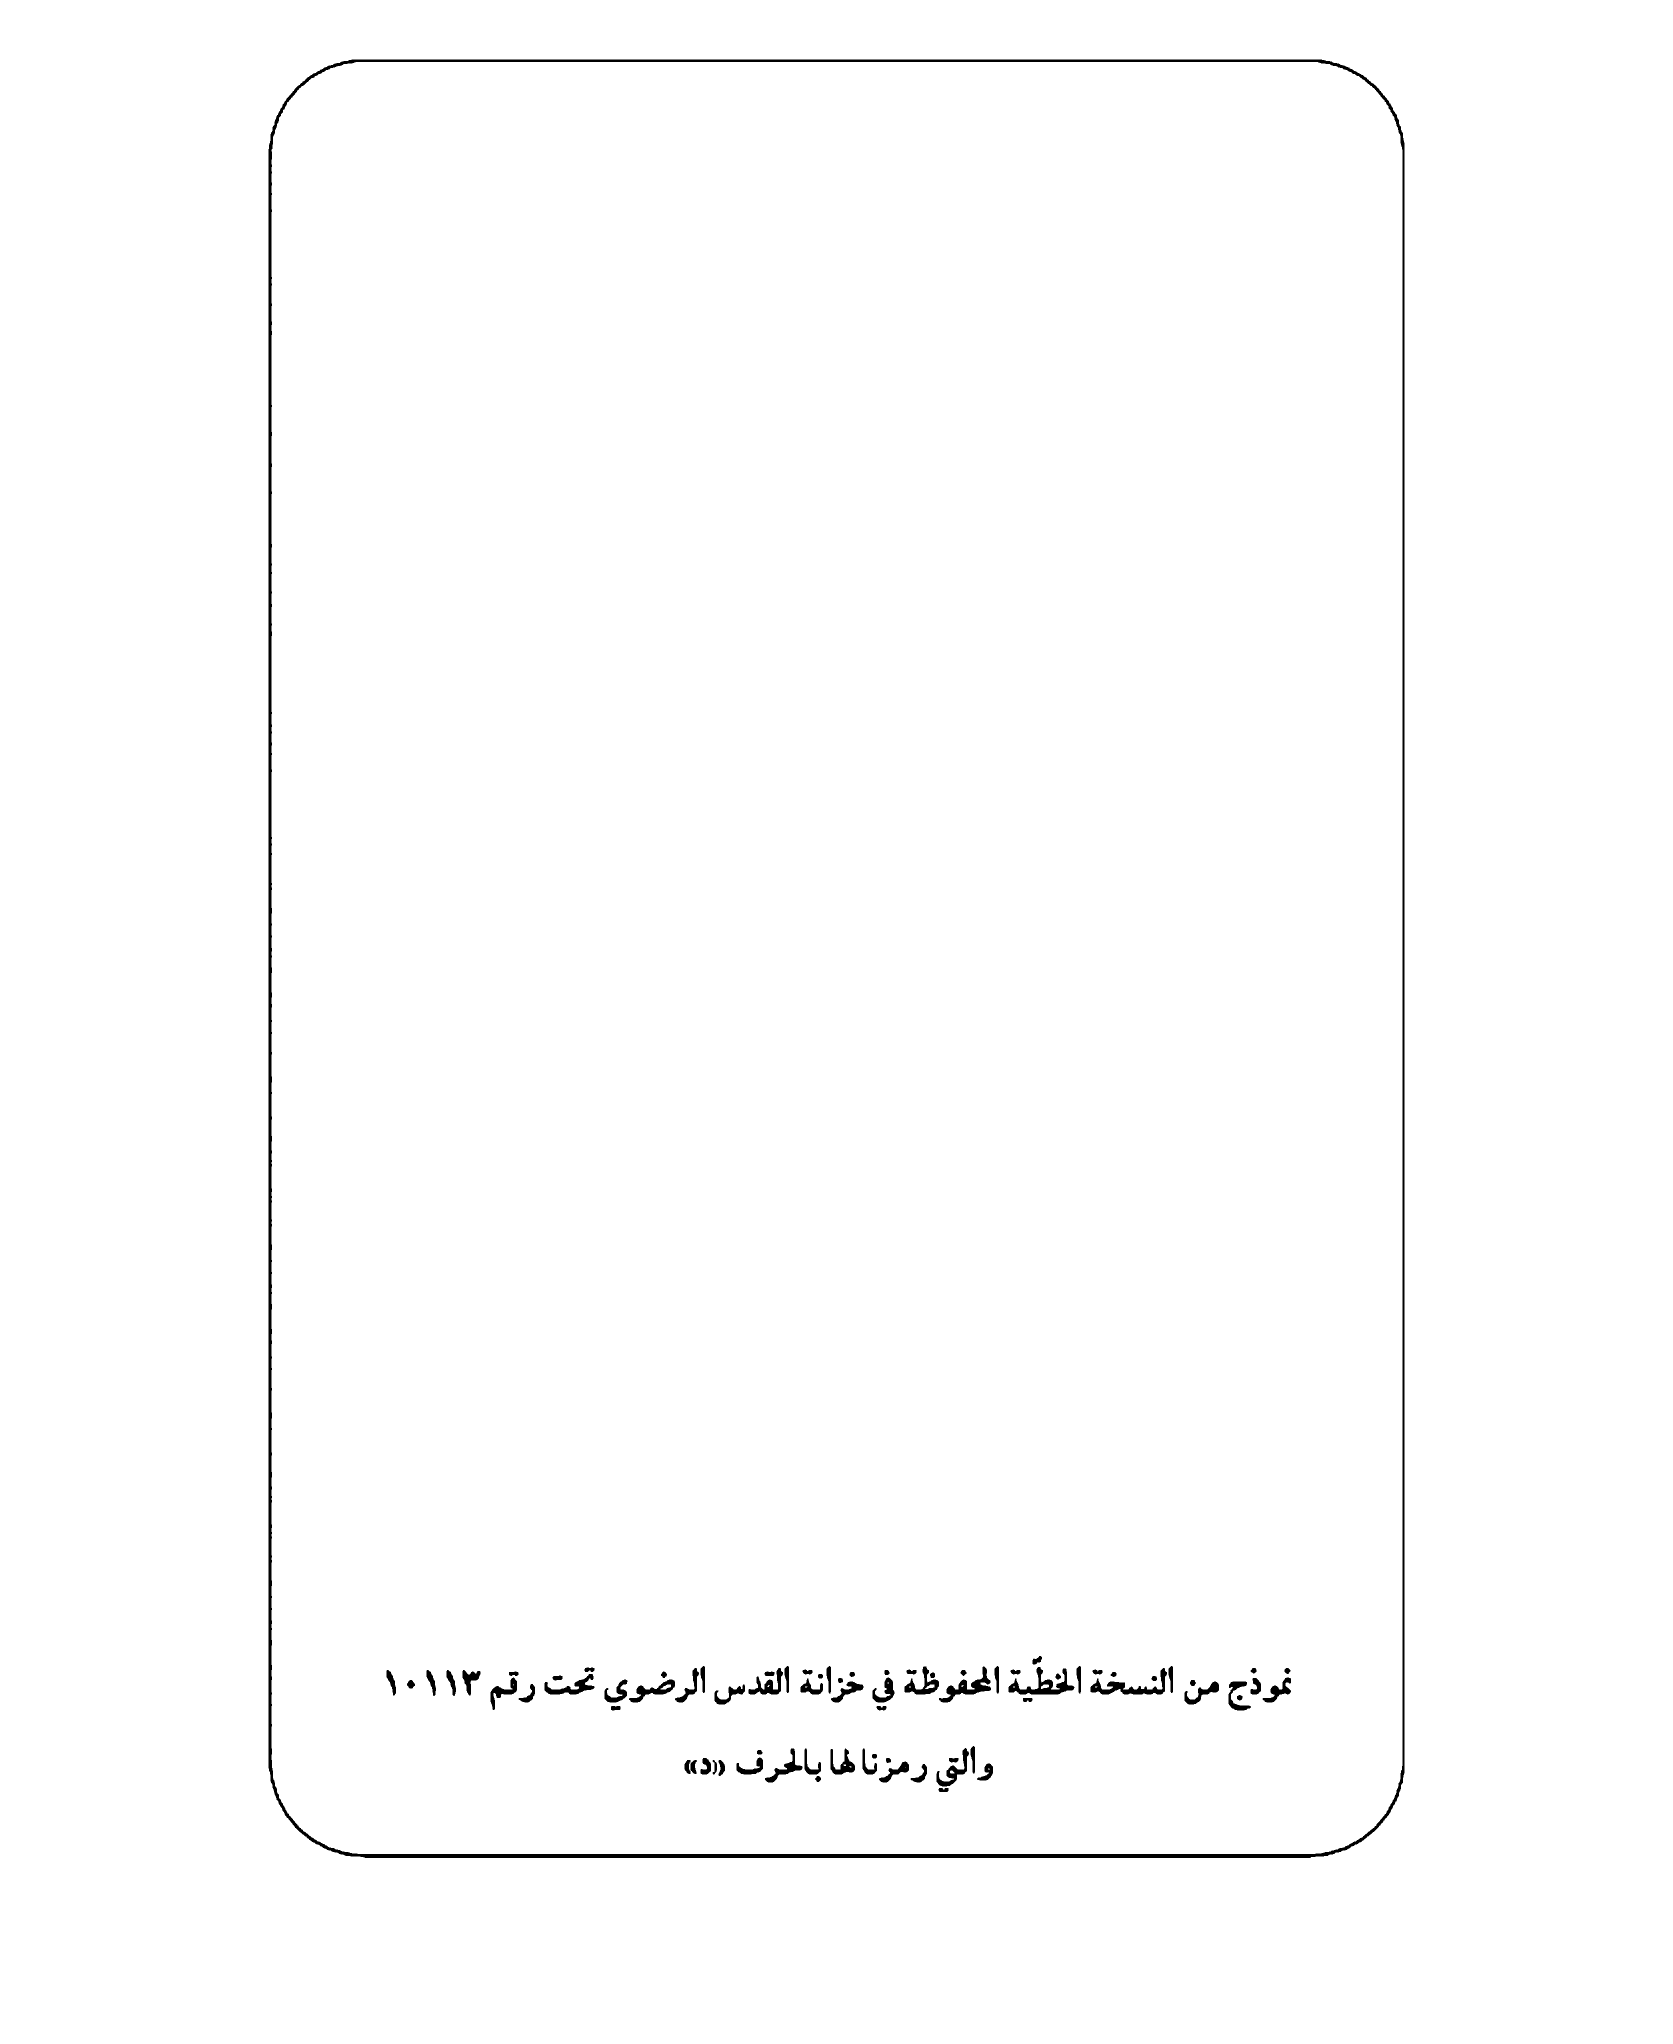 نموذج من النسخة الخطّية المحفوظة في خزانة القدس الرضوي تحت رقم ١٠١١٣
والتي رمزنا لها بالحرف «د»